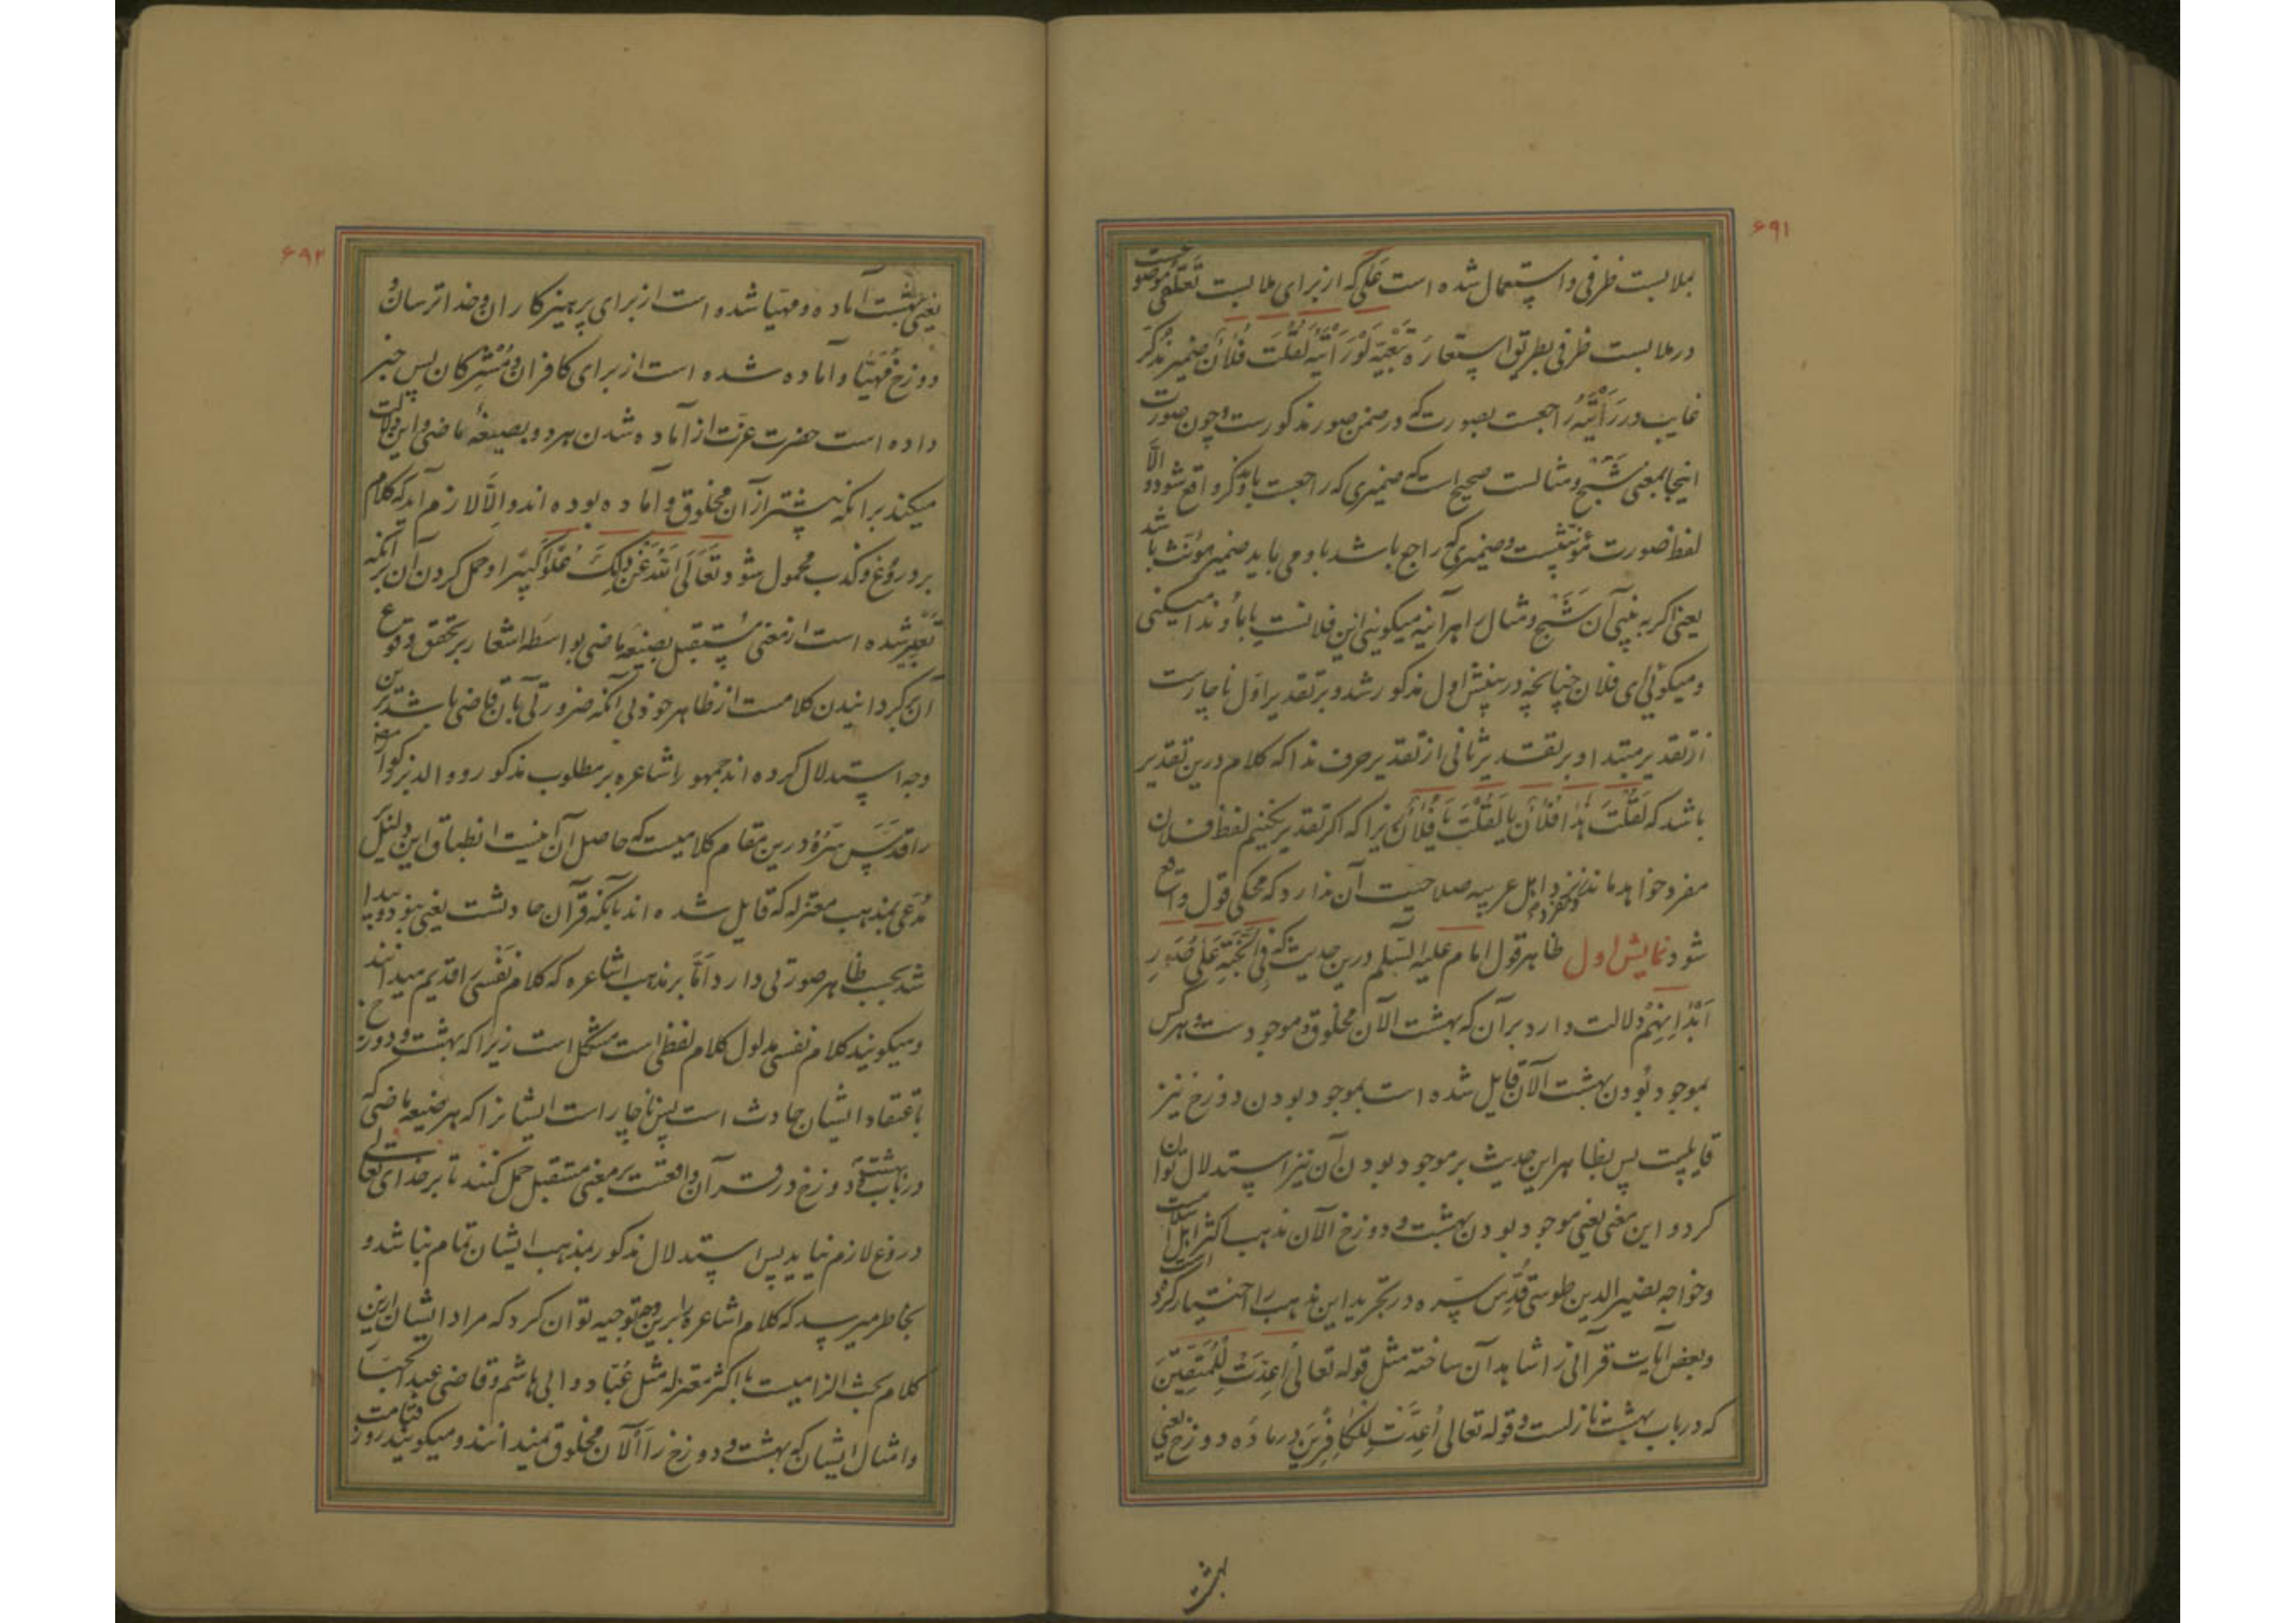 ۶۹۱
بملابست ظرفی و استعمال شده است عَلٰی که از برای ملابست تَعَلُّقی موضوعست
در ملابست ظرفی بطریق استعارَه تَبَعِیَّه لَوْ رَأَیْتَهُ لَقُلْتَ فُلَانٌ ضمیر مذکَّر
غایب در رَأَیْتَهُ راجعست بصورت که در ضمن صور مذکورست و چون صورت
اینجا بمعنی شَبَح و مثالست صحیح است که ضمیری که راجعست باو مذکر واقع شود و الّا
لفظ صورت مؤنثست و ضمیری که راجع باشد باو می باید ضمیر مؤنث باشد
یعنی اکر به بینی آن شَبَح و مثال را هرآینه میکوئی این فلانست یا باو ندا میکنی
و میکوئی ای فلان چنانچه در بینش اول مذکور شد و بر تقدیر اوّل ناچارست
از تقدیر مبتدا و بر تقدیر ثانی از تقدیر حرف ندا که کلام درین تقدیر
باشد که لَقُلْتَ هٰذَا فُلَانٌ یا لَقُلْتَ یَا فُلَانُ زیرا که اکر تقدیر نکنیم لفظ فلان
مفرد خواهد ماند و مفرد نزد اهل عربیه صلاحیت آن ندارد که محکی قول واقع
شود نمایش اول ظاهر قول امام علیه السّلم درین حدیث که فِی الْجَنَّةِ عَلٰی صُوَرِ
اَبْدَانِهِمْ دلالت دارد بر آن که بهشت الآن مخلوق و موجودست و هر کس
بموجود بُودن بهشت الآن قایل شده است بموجود بودن دوزخ نیز
قایلست پس بظاهر این حدیث بر موجود بودن آن نیز استدلال توان
کرد و این معنی یعنی موجود بودن بهشت و دوزخ الآن مذهب اکثر اهل اسلامست
و خواجه نصیر الدین طوسی قُدِّسَ سِرّه در تجرید این مذهب را اختیار کرده
و بعض آیات قرآنی را شاهد آن ساخته مثل قوله تعالی اُعِدَّتْ لِلْمُتَّقِینَ
که در باب بهشت نازلست و قوله تعالی اُعِدَّتْ لِلْکَافِرِینَ در ماده دوزخ یعنی
۶۹۲
یعنی بهشت آماده و مهیّا شده است از برای پرهیزکاران و خدا ترسان و
دوزخ مُهَیّا و آماده شده است از برای کافران و مُشْرِکان پس خبر
داده است حضرت عزت از آماده شدن هر دو بصیغهٔ ماضی و این دلالت
میکند بر انکه پیشتر از آن مخلوق و اماده بوده اند و اِلّا لازم آید که کلام
بر دروغ و کذب محمول شود تَعَالَی اللّٰهُ عَنْ ذٰلِکَ عُلُوًّا کَبِیرًا و حمل کردن آن بر آنکه
تعبیر شده است از معنی مستقبل بصیغهٔ ماضی بواسطه اشعار بر تحقق وقوع
آن کردانیدن کلامست از ظاهر خود بی آنکه ضرورتی بآن قاضی باشد برین
وجه استدلال کرده اند جمهور اشاعره بر مطلوب مذکور و والد بزرکوار
را قُدِّسَ سِرُّه درین مقام کلامیست که حاصل آن اینست انطباق این دلیل
مُدَّعی بمذهب معتزله که قایل شده اند بآنکه قرآن حادثست یعنی نبود و پیدا
شد بحسب ظاهر صورتی دارد اَمَّا بر مذهب اشاعره که کلام نَفْسی را قدیم میدانند
و میکویند کلام نفسی مدلول کلام لفظی است مشکل است زیرا که بهشت و دوزخ
باعتقاد ایشان حادث است پس ناچار است ایشانرا که هر صیغه ماضی که
در باب بهشت و دوزخ در قرآن واقعست بر معنی مستقبل حمل کنند تا بر خدای تعالی
دروغ لازم نیاید پس استدلال مذکور بمذهب ایشان تمام نباشد و
بخاطر میرسد که کلام اشاعره را برین وجه توجیه توان کرد که مراد ایشان ازین
کلام بحث الزامیست با اکثر معتزله مثل عَبّاد و ابی هاشم و قاضی عبد الجبّار
و امثال ایشان که بهشت و دوزخ را اَلآن مخلوق نمیدانند و میکویند روز قیامت